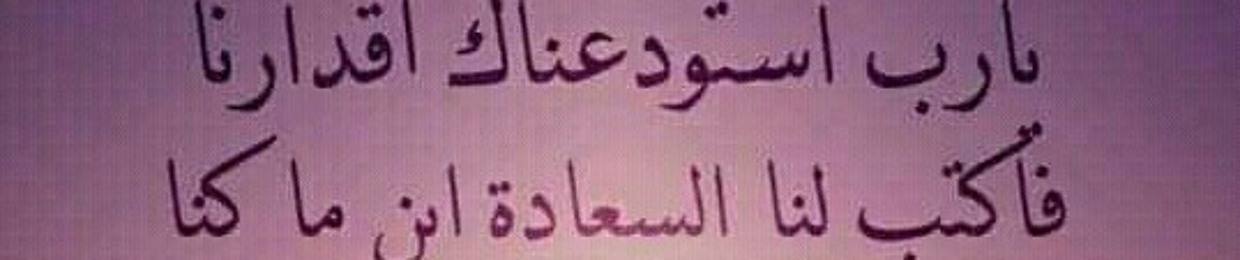 يارب استودعناك اقدارنا
فاكتب لنا السعادة اين ما كنا